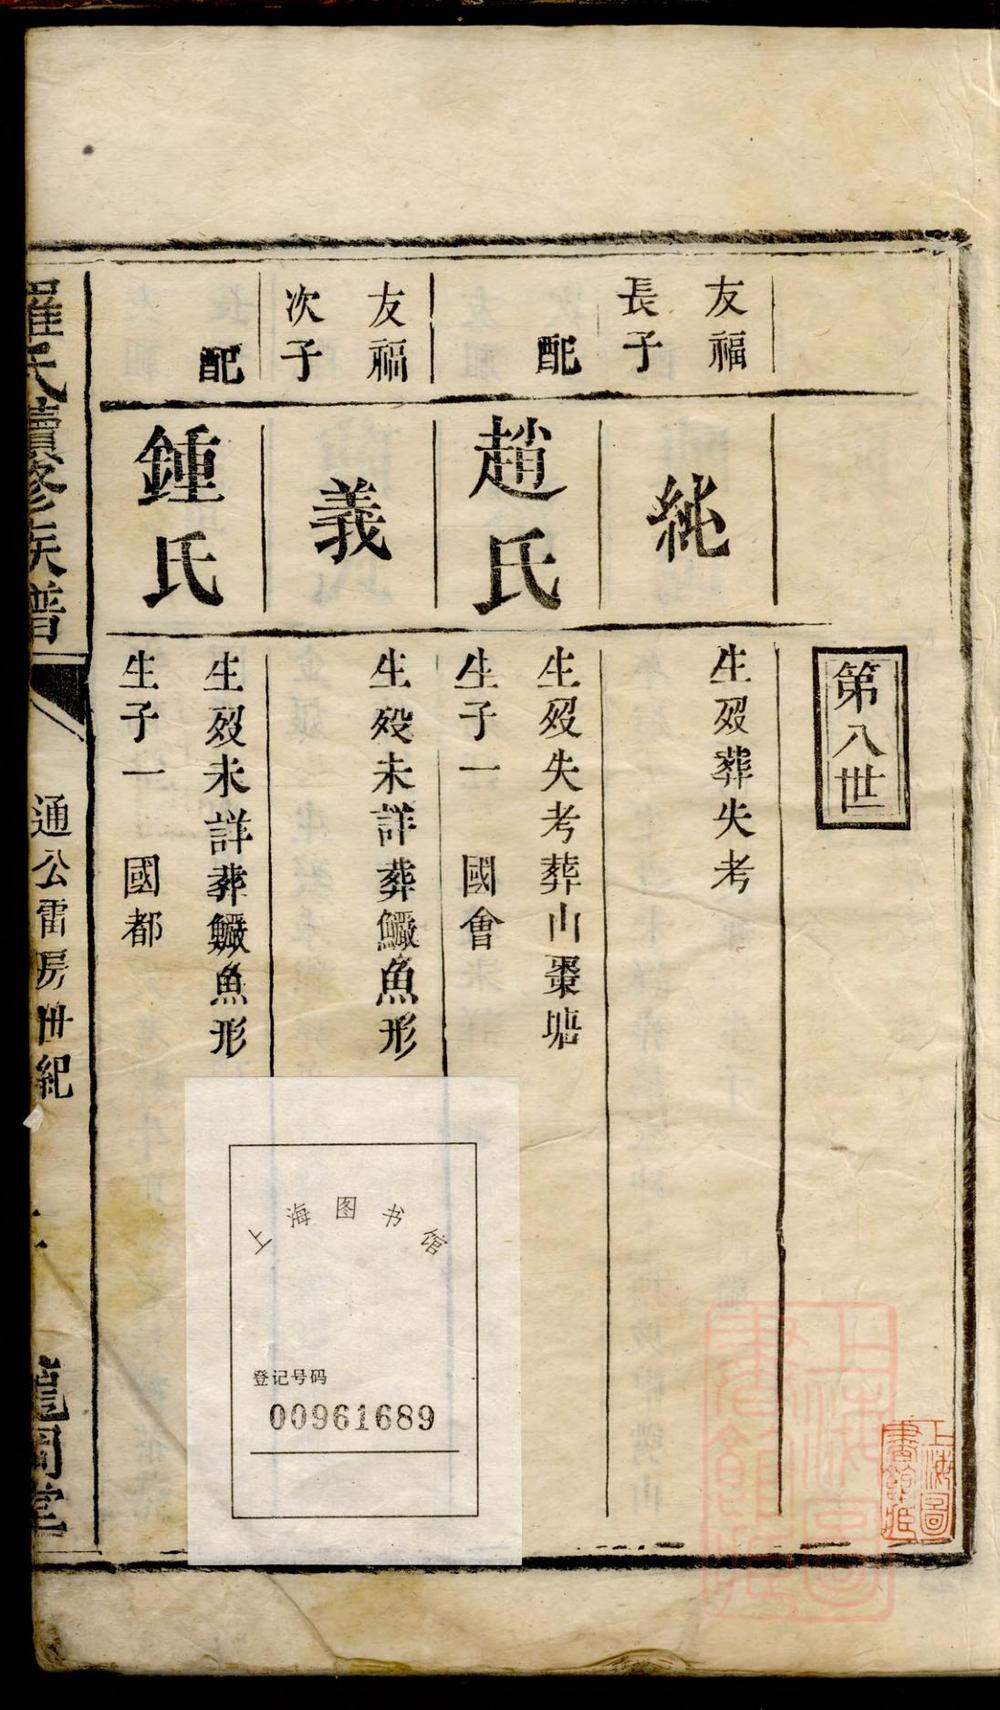 第八世
友福
長子
純
生歿葬失考
配
趙氏
生歿失考葬山棗塘
生子一 國會
友福
次子
義
生歿未詳葬鱖魚形
配
鍾氏
生歿未詳葬鱖魚形
生子一 國都
羅氏續修族譜
通公雷房世紀
上海图书馆
登记号码
00961689
上海圖
書館藏